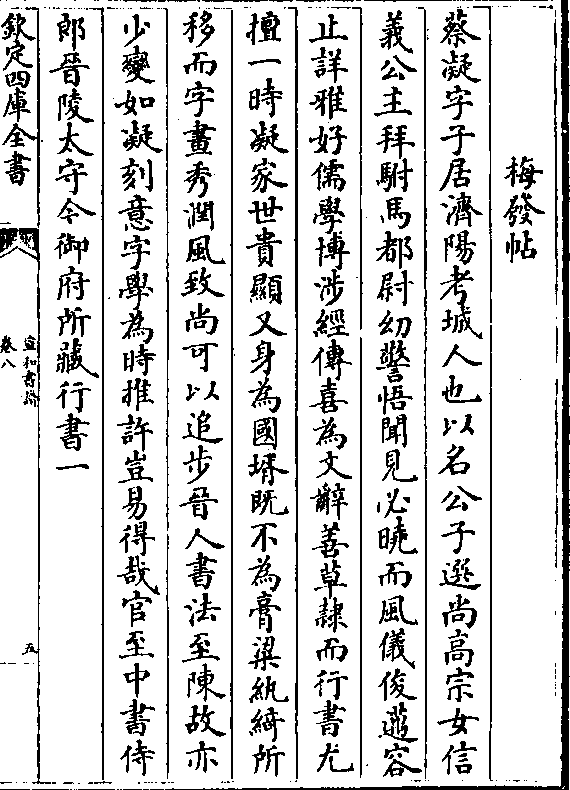 梅發帖
蔡凝字子居濟陽考城人也以名公子選尚髙宗女信
義公主拜駙馬都尉幼警悟聞見必曉而風儀俊邁容
止詳雅好儒學博涉經傳喜為文辭善草隷而行書尤
擅一時凝家世貴顯又身為國壻既不為膏粱紈綺所
移而字畫秀潤風致尚可以追步晉人書法至陳故亦
少變如凝刻意字學為時推許豈易得哉官至中書侍
郎晉陵太守今御府所藏行書一
欽定四庫全書
宣和書譜
卷八
五